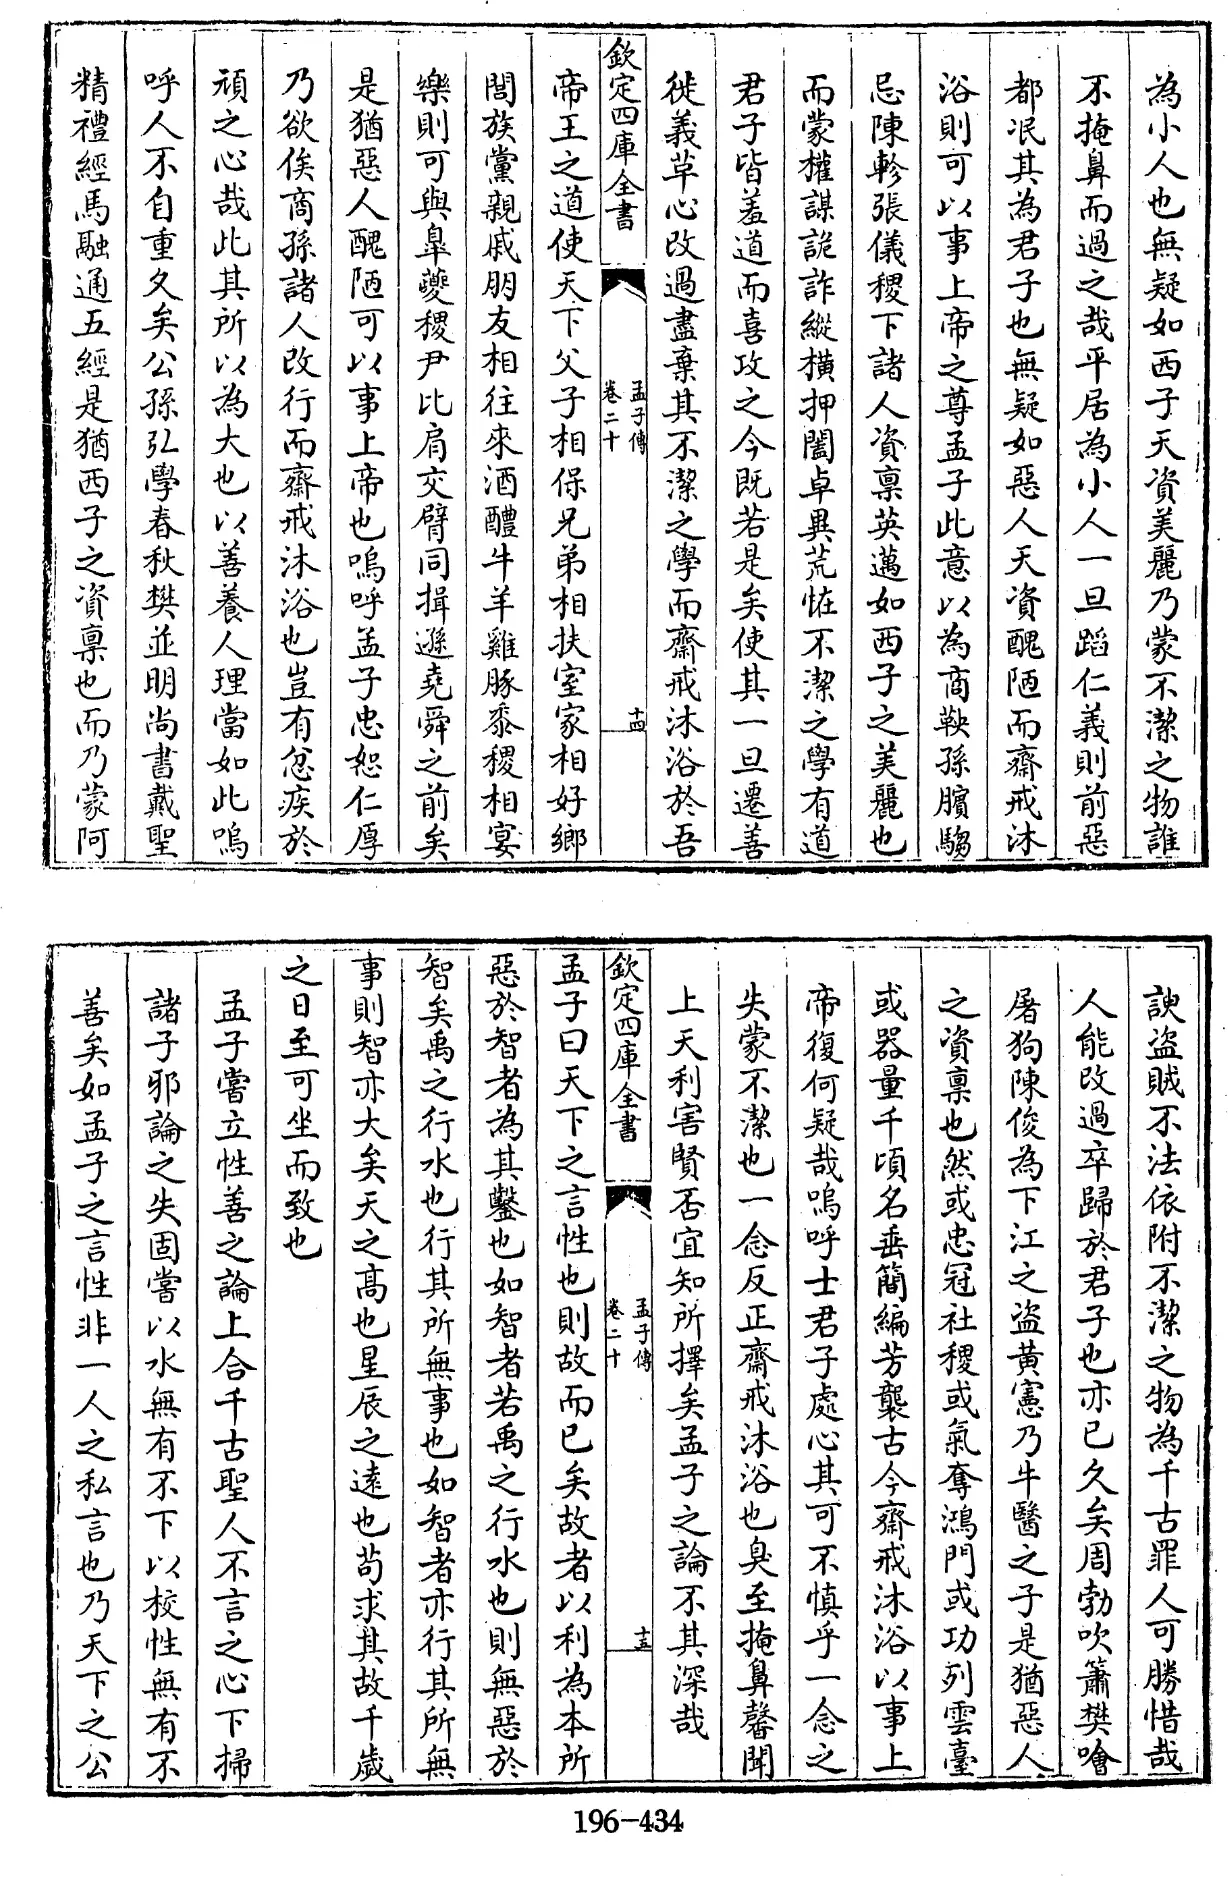 為小人也無疑如西子天資美麗乃蒙不潔之物誰
不掩鼻而過之哉平居為小人一旦蹈仁義則前惡
都冺其為君子也無疑如惡人天資醜陋而齋戒沐
浴則可以事上帝之尊孟子此意以為商鞅孫臏騶
忌陳軫張儀稷下諸人資禀英邁如西子之美麗也
而蒙權謀詭詐縱橫押闔卓異荒怪不潔之學有道
君子皆羞道而喜攻之今既若是矣使其一旦遷善
徙義革心改過盡棄其不潔之學而齋戒沐浴於吾
欽定四庫全書
孟子傳
卷二十
十四
帝王之道使天下父子相保兄弟相扶室家相好鄉
閭族黨親戚朋友相往來酒醴牛羊雞豚黍稷相宴
樂則可與臯夔稷尹比肩交臂同揖遜堯舜之前矣
是猶惡人醜陋可以事上帝也嗚呼孟子忠恕仁厚
乃欲俟商孫諸人改行而齋戒沐浴也豈有忿疾於
頑之心哉此其所以為大也以善養人理當如此嗚
呼人不自重久矣公孫弘學春秋樊並明尚書戴聖
精禮經馬融通五經是猶西子之資禀也而乃蒙阿
諛盜賊不法依附不潔之物為千古罪人可勝惜哉
人能改過卒歸於君子也亦已久矣周勃吹簫樊噲
屠狗陳俊為下江之盜黄憲乃牛醫之子是猶惡人
之資禀也然或忠冠社稷或氣奪鴻門或功列雲臺
或器量千頃名垂簡編芳襲古今齋戒沐浴以事上
帝復何疑哉嗚呼士君子處心其可不慎乎一念之
失蒙不潔也一念反正齋戒沐浴也臭至掩鼻馨聞
上天利害賢否宜知所擇矣孟子之論不其深哉
欽定四庫全書
孟子傳
卷二十
十五
孟子曰天下之言性也則故而已矣故者以利為本所
惡於智者為其鑿也如智者若禹之行水也則無惡於
智矣禹之行水也行其所無事也如智者亦行其所無
事則智亦大矣天之髙也星辰之逺也茍求其故千歲
之日至可坐而致也
孟子嘗立性善之論上合千古聖人不言之心下掃
諸子邪論之失固嘗以水無有不下以校性無有不
善矣如孟子之言性非一人之私言也乃天下之公
196-434